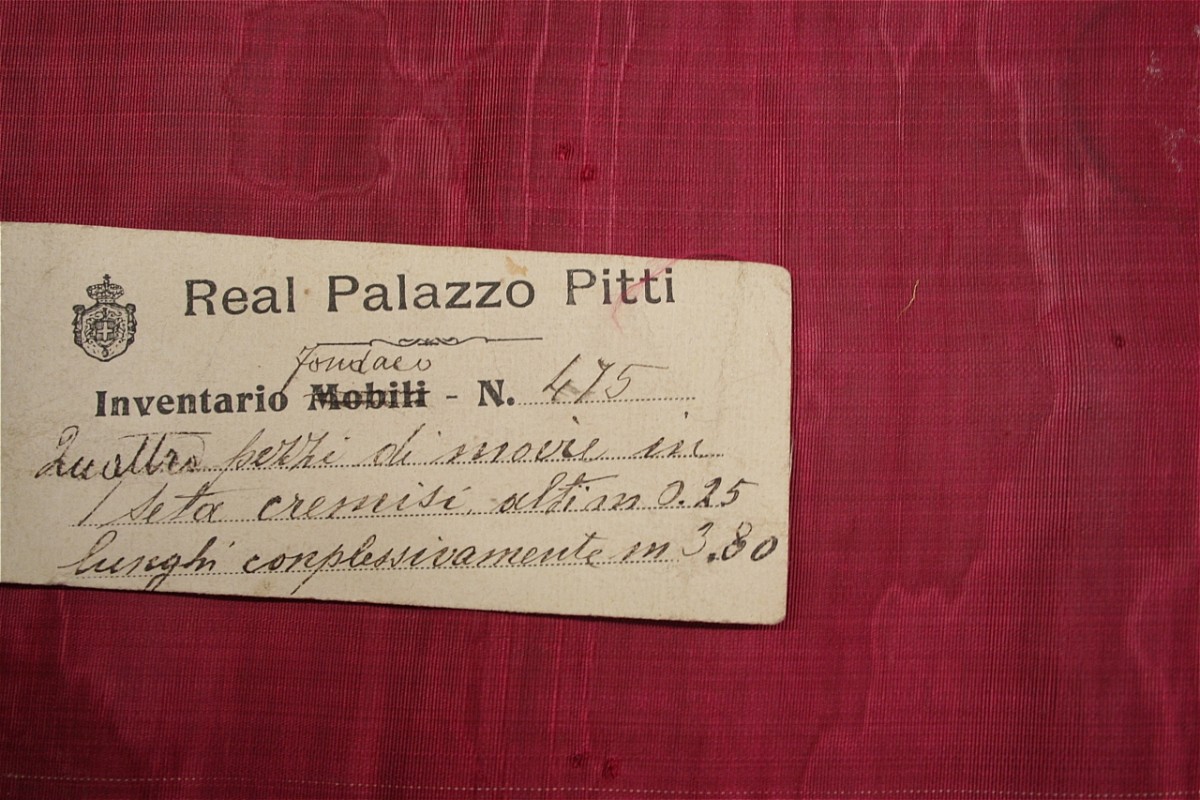 Real Palazzo Pitti
Fondaco
Inventario Mobili - N. 475
Quattro pezzi di moire in
seta cremisi alti m 0.25
lunghi conplessivamente m 3.80